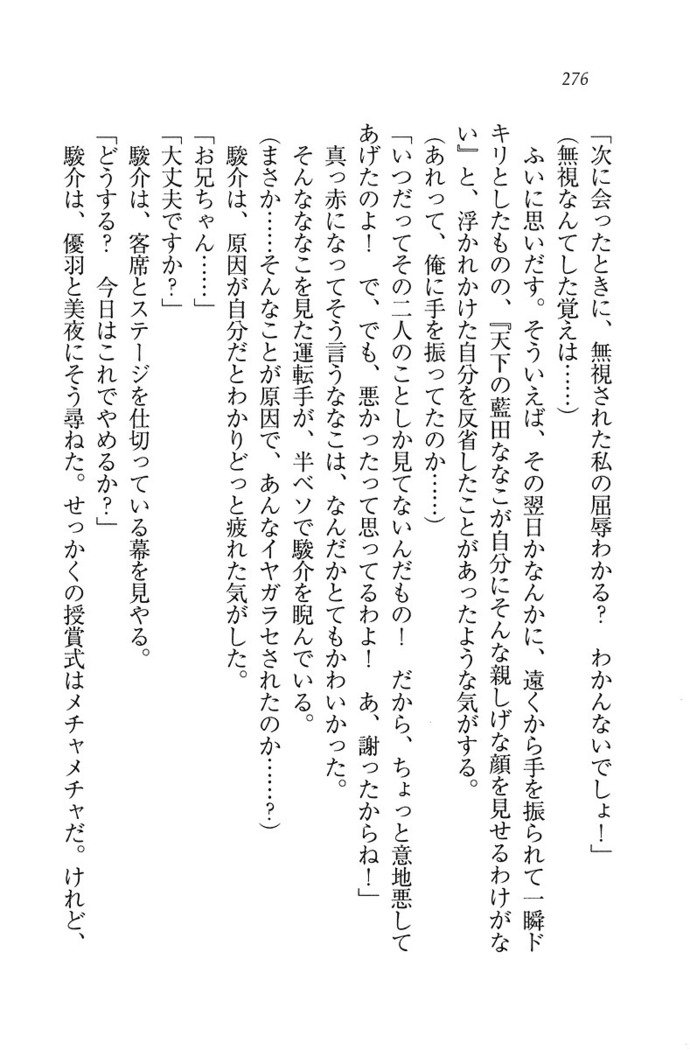 276
「次に会ったときに、無視された私の屈辱わかる？　わかんないでしょ！」
（無視なんてした覚えは……）
　ふいに思いだす。そういえば、その翌日かなんかに、遠くから手を振られて一瞬ド
キリとしたものの、『天下の藍田ななこが自分にそんな親しげな顔を見せるわけがな
い』と、浮かれかけた自分を反省したことがあったような気がする。
（あれって、俺に手を振ってたのか……）
「いつだってその二人のことしか見てないんだもの！　だから、ちょっと意地悪して
あげたのよ！　で、でも、悪かったって思ってるわよ！　あ、謝ったからね！」
　真っ赤になってそう言うななこは、なんだかとてもかわいかった。
　そんなななこを見た運転手が、半ベソで駿介を睨んでいる。
（まさか……そんなことが原因で、あんなイヤガラセされたのか……？）
　駿介は、原因が自分だとわかりどっと疲れた気がした。
「お兄ちゃん……」
「大丈夫ですか？」
　駿介は、客席とステージを仕切っている幕を見やる。
「どうする？　今日はこれでやめるか？」
　駿介は、優羽と美夜にそう尋ねた。せっかくの授賞式はメチャメチャだ。けれど、